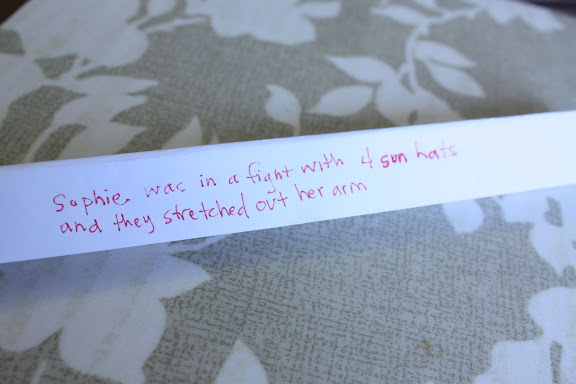 Sophie was in a fight with 4 sun hats
and they stretched out her arm